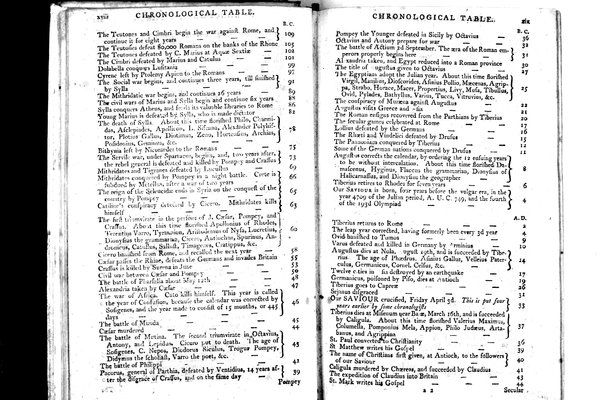 xviii CHRONOLOGICAL TABLE.
B. C.
The Teutones and Cimbri begin the war against Rome, and continue it for eight years 109
The Teutones defeat 80,000 Romans on the banks of the Rhone 105
The Teutones defeated by C. Marius at Aquæ Sextiæ 102
The Cimbri defeated by Marius and Catulus 101
Dolabella conquers Lusitania 99
Cyrene left by Ptolemy Apion to the Romans 97
The Social war begins, and continues three years, till finished by Sylla 91
The Mithridatic war begins, and continues 26 years 89
The civil wars of Marius and Sylla begin and continue six years 88
Sylla conquers Athens, and sends its valuable libraries to Rome 86
Young Marius is defeated by Sylla, who is made dictator 82
The death of Sylla. About this time flourished Philo, Charmidas, Asclepiades, Apellicon, L. Sisenna, Alexander Polyhistor, Plotius Gallus, Diotimus, Zeno, Hortensius, Archias, Posidonius, Geminus, &c. 78
Bithynia left by Nicomedes to the Romans 75
The Servile war, under Spartacus, begins, and, two years after, the rebel general is defeated and killed by Pompey and Crassus 73
Mithridates and Tigranes defeated by Lucullus 69
Mithridates conquered by Pompey in a night battle. Crete is subdued by Metellus, after a war of two years 66
The reign of the Seleucidæ ends in Syria on the conquest of the country by Pompey 65
Catiline's conspiracy detected by Cicero. Mithridates kills himself 63
The first triumvirate in the persons of J. Cæsar, Pompey, and Crassus. About this time flourished Apollonius of Rhodes, Terentius Varro, Tyrannion, Aristodemus of Nysa, Lucretius, Dionysius the grammarian, Cicero, Antiochus, Spurinus, Andronicus, Catullus, Sallust, Timagenes, Cratippus, &c. 60
Cicero banished from Rome, and recalled the next year 58
Cæsar passes the Rhine, defeats the Germans and invades Britain 55
Crassus is killed by Surena in June 53
Civil war between Cæsar and Pompey 50
The battle of Pharsalia about May 12th 48
Alexandria taken by Cæsar 47
The war of Africa. Cato kills himself. This year is called the year of Confusion, because the calendar was corrected by Sosigenes, and the year made to consist of 15 months, or 445 days 46
The battle of Munda 45
Cæsar murdered 44
The battle of Mutina. The second triumvirate in Octavius, Antony, and Lepidus. Cicero put to death. The age of Sosigenes, C. Nepos, Diodorus Siculus, Trogus Pompey, Didymus the scholiast, Varro the poet, &c. 43
The battle of Philippi 42
Pacorus, general of Parthia, defeated by Ventidius, 14 years after the disgrace of Crassus, and on the same day 39
Pompey
CHRONOLOGICAL TABLE. xix
B. C.
Pompey the Younger defeated in Sicily by Octavius 36
Octavius and Antony prepare for war 32
The battle of Actium 2d September. The æra of the Roman emperors properly begins here 31
Alexandria taken, and Egypt reduced into a Roman province 30
The title of Augustus given to Octavius 27
The Egyptians adopt the Julian year. About this time flourished Virgil, Manilius, Dioscorides, Asinius Pollio, Mæcenas, Agrippa, Strabo, Horace, Macer, Propertius, Livy, Musa, Tibullus, Ovid, Pylades, Bathyllus, Varius, Tucca, Vitruvius, &c. 25
The conspiracy of Muræna against Augustus 22
Augustus visits Greece and Asia 21
The Roman ensigns recovered from the Parthians by Tiberius 20
The secular games celebrated at Rome 17
Lollius defeated by the Germans 16
The Rhæti and Vindelici defeated by Drusus 15
The Pannonians conquered by Tiberius 12
Some of the German nations conquered by Drusus 11
Augustus corrects the calendar, by ordering the 12 ensuing years to be without intercalation. About this time flourished Damascenus, Hyginus, Flaccus the grammarian, Dionysius of Halicarnassus, and Dionysius the geographer 8
Tiberius retires to Rhodes for seven years 6
Our Saviour is born, four years before the vulgar era, in the year 4709 of the Julian period, A. U. C. 749, and the fourth of the 193d Olympiad 4
A. D.
Tiberius returns to Rome 2
The leap year corrected, having formerly been every 3d year 4
Ovid banished to Tomos 9
Varus defeated and killed in Germany by Arminius 10
Augustus dies at Nola, August 19th, and is succeeded by Tiberius. The age of Phædrus, Asinius Gallus, Velleius Paterculus, Germanicus, Cornel. Celsus, &c. 14
Twelve cities in Asia destroyed by an earthquake 17
Germanicus, poisoned by Piso, dies at Antioch 19
Tiberius goes to Capreæ 26
Sejanus disgraced 31
Our SAVIOUR crucified, Friday April 3d. This is put four years earlier by some chronologists 33
Tiberius dies at Misenum near Baiæ, March 16th, and is succeeded by Caligula. About this time flourished Valerius Maximus, Columella, Pomponius Mela, Appion, Philo Judæus, Artabanus, and Agrippina 37
St. Paul converted to Christianity 36
St Matthew writes his Gospel 39
The name of Christians first given, at Antioch, to the followers of our Saviour 40
Caligula murdered by Chæreas, and succeeded by Claudius 41
The expedition of Claudius into Britain 43
St. Mark writes his Gospel 44
a 2
Secular